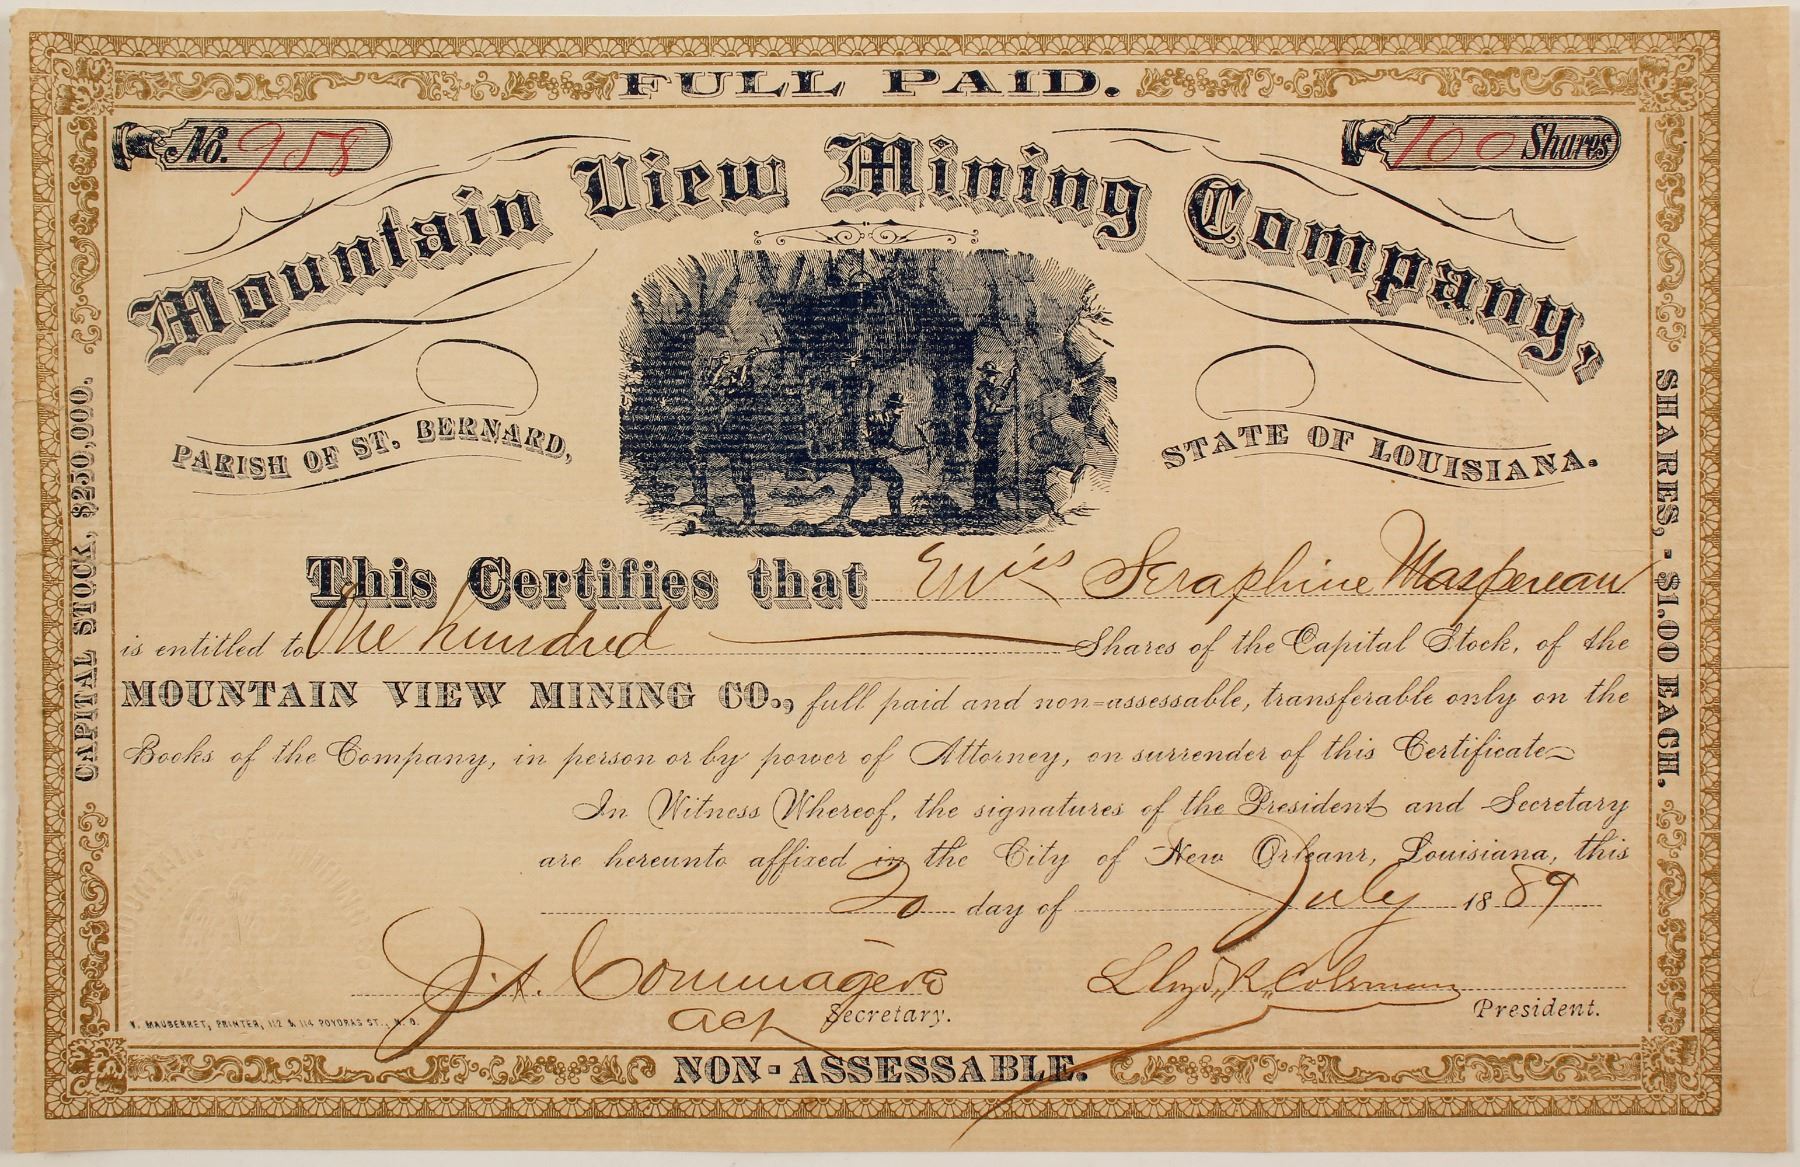 FULL PAID.
No. 958
100 Shares
Mountain View Mining Company,
PARISH OF ST. BERNARD,
STATE OF LOUISIANA.
CAPITAL STOCK, $250,000.
SHARES, - $1.00 EACH.
This Certifies that Miss Seraphine Maspereau
is entitled to One hundred Shares of the Capital Stock, of the
MOUNTAIN VIEW MINING CO., full paid and non=assessable, transferable only on the
Books of the Company, in person or by power of Attorney, on surrender of this Certificate
In Witness Whereof, the signatures of the President and Secretary
are hereunto affixed in the City of New Orleans, Louisiana, this
20 day of July 1889
J. A. Commagere
Lloyd R. Coleman
act Secretary.
President.
V. MAUBERRET, PRINTER, 112 & 114 POYDRAS ST., N. O.
NON-ASSESSABLE.